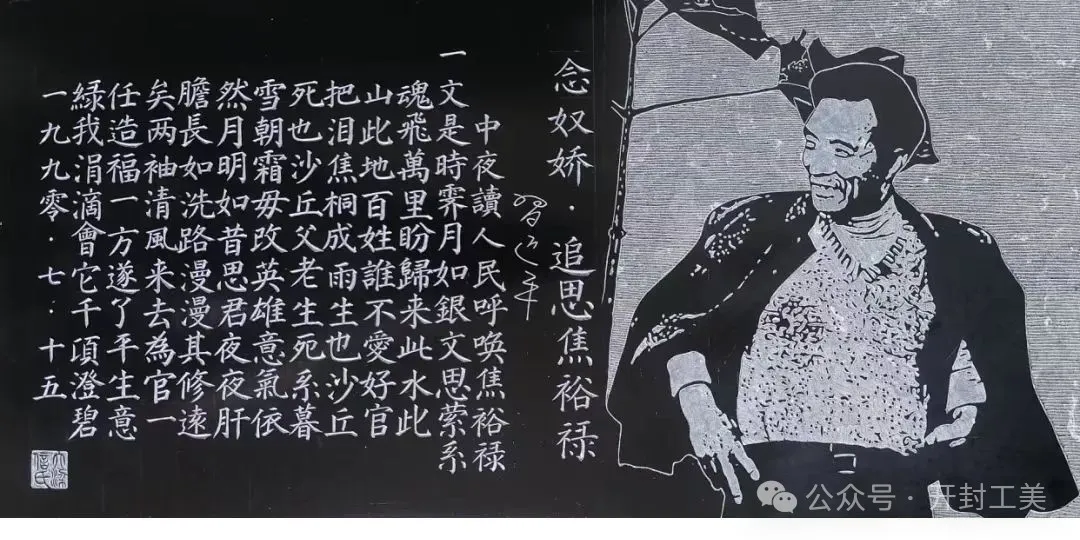 念奴娇·追思焦裕禄
習近平
中夜讀人民呼唤焦裕禄
一文是時霁月如銀文思萦系
魂飛萬里盼歸来此水此
山此地百姓誰不愛好官
把泪焦桐成雨生也沙丘
死也沙丘父老生死系暮
雪朝霜毋改英雄意氣依
然月明如昔思君夜夜肝
膽長如洗路漫漫其修遠
矣两袖清風来去為官一
任造福一方遂了平生意
緑我涓滴會它千頃澄碧
一九九零·七·十五
公众号·开封工美